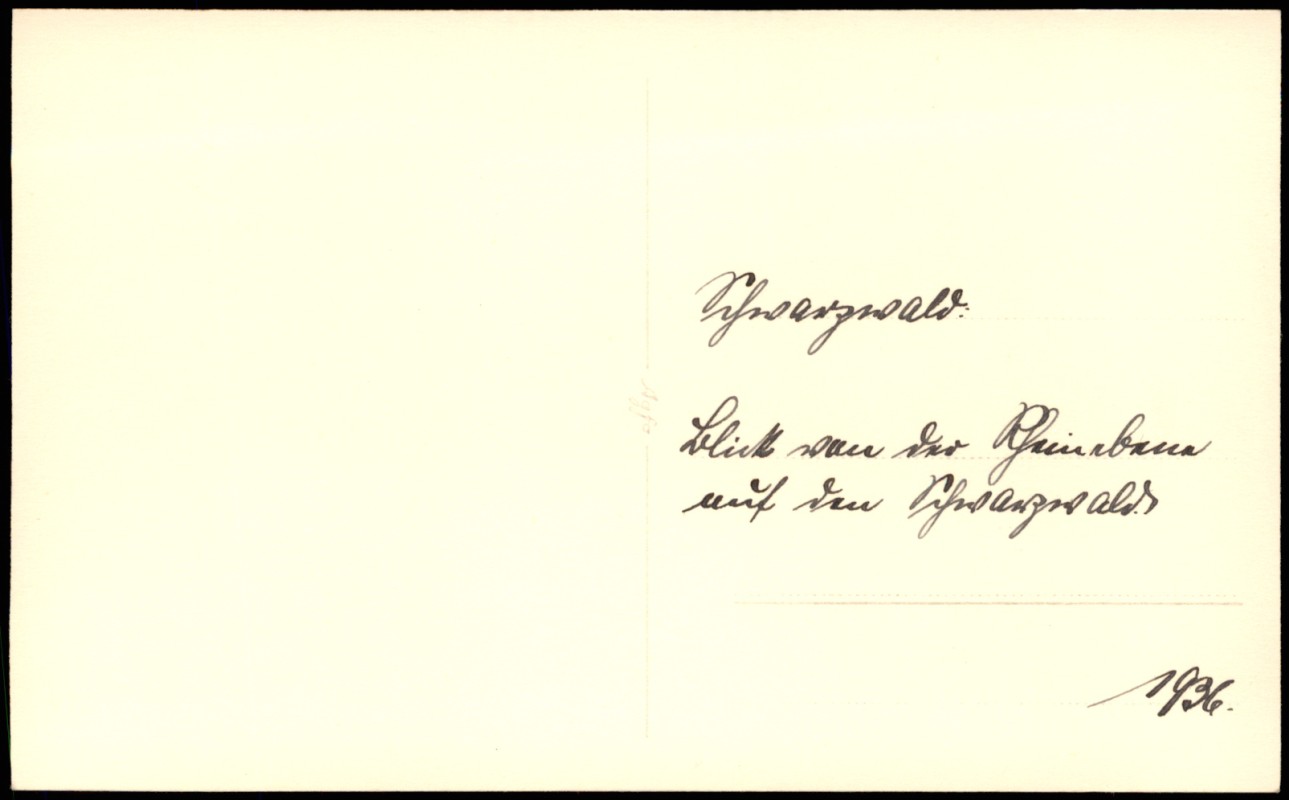 Schwarzwald:
Blick von der Rheinebene
auf den Schwarzwald.
1936.